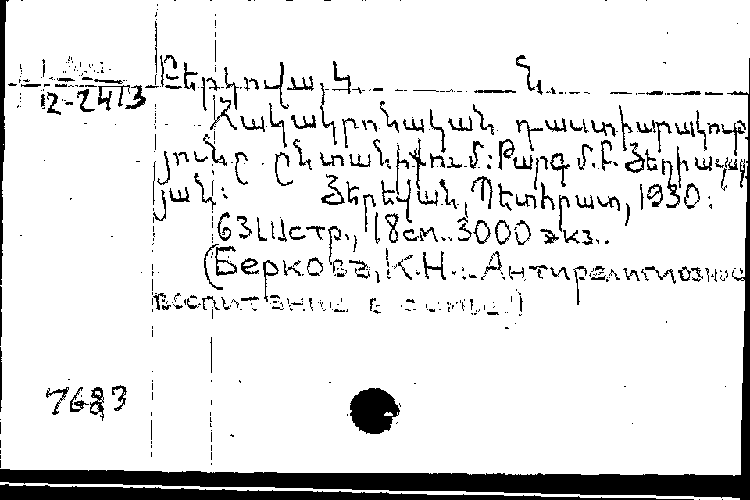 Բերկովա, Կ. Ն.
12-2413
Հակակրոնական դաստիարակութ
յունը ընտանիքում: Թարգմ. Բ. Յերիպաս
յան: Յերեվան, Պետհրատ, 1930:
63 стр., 18см. 3000 экз.
(Беркова, К.Н.: Антирелигиозное
воспитание в семье)
7683